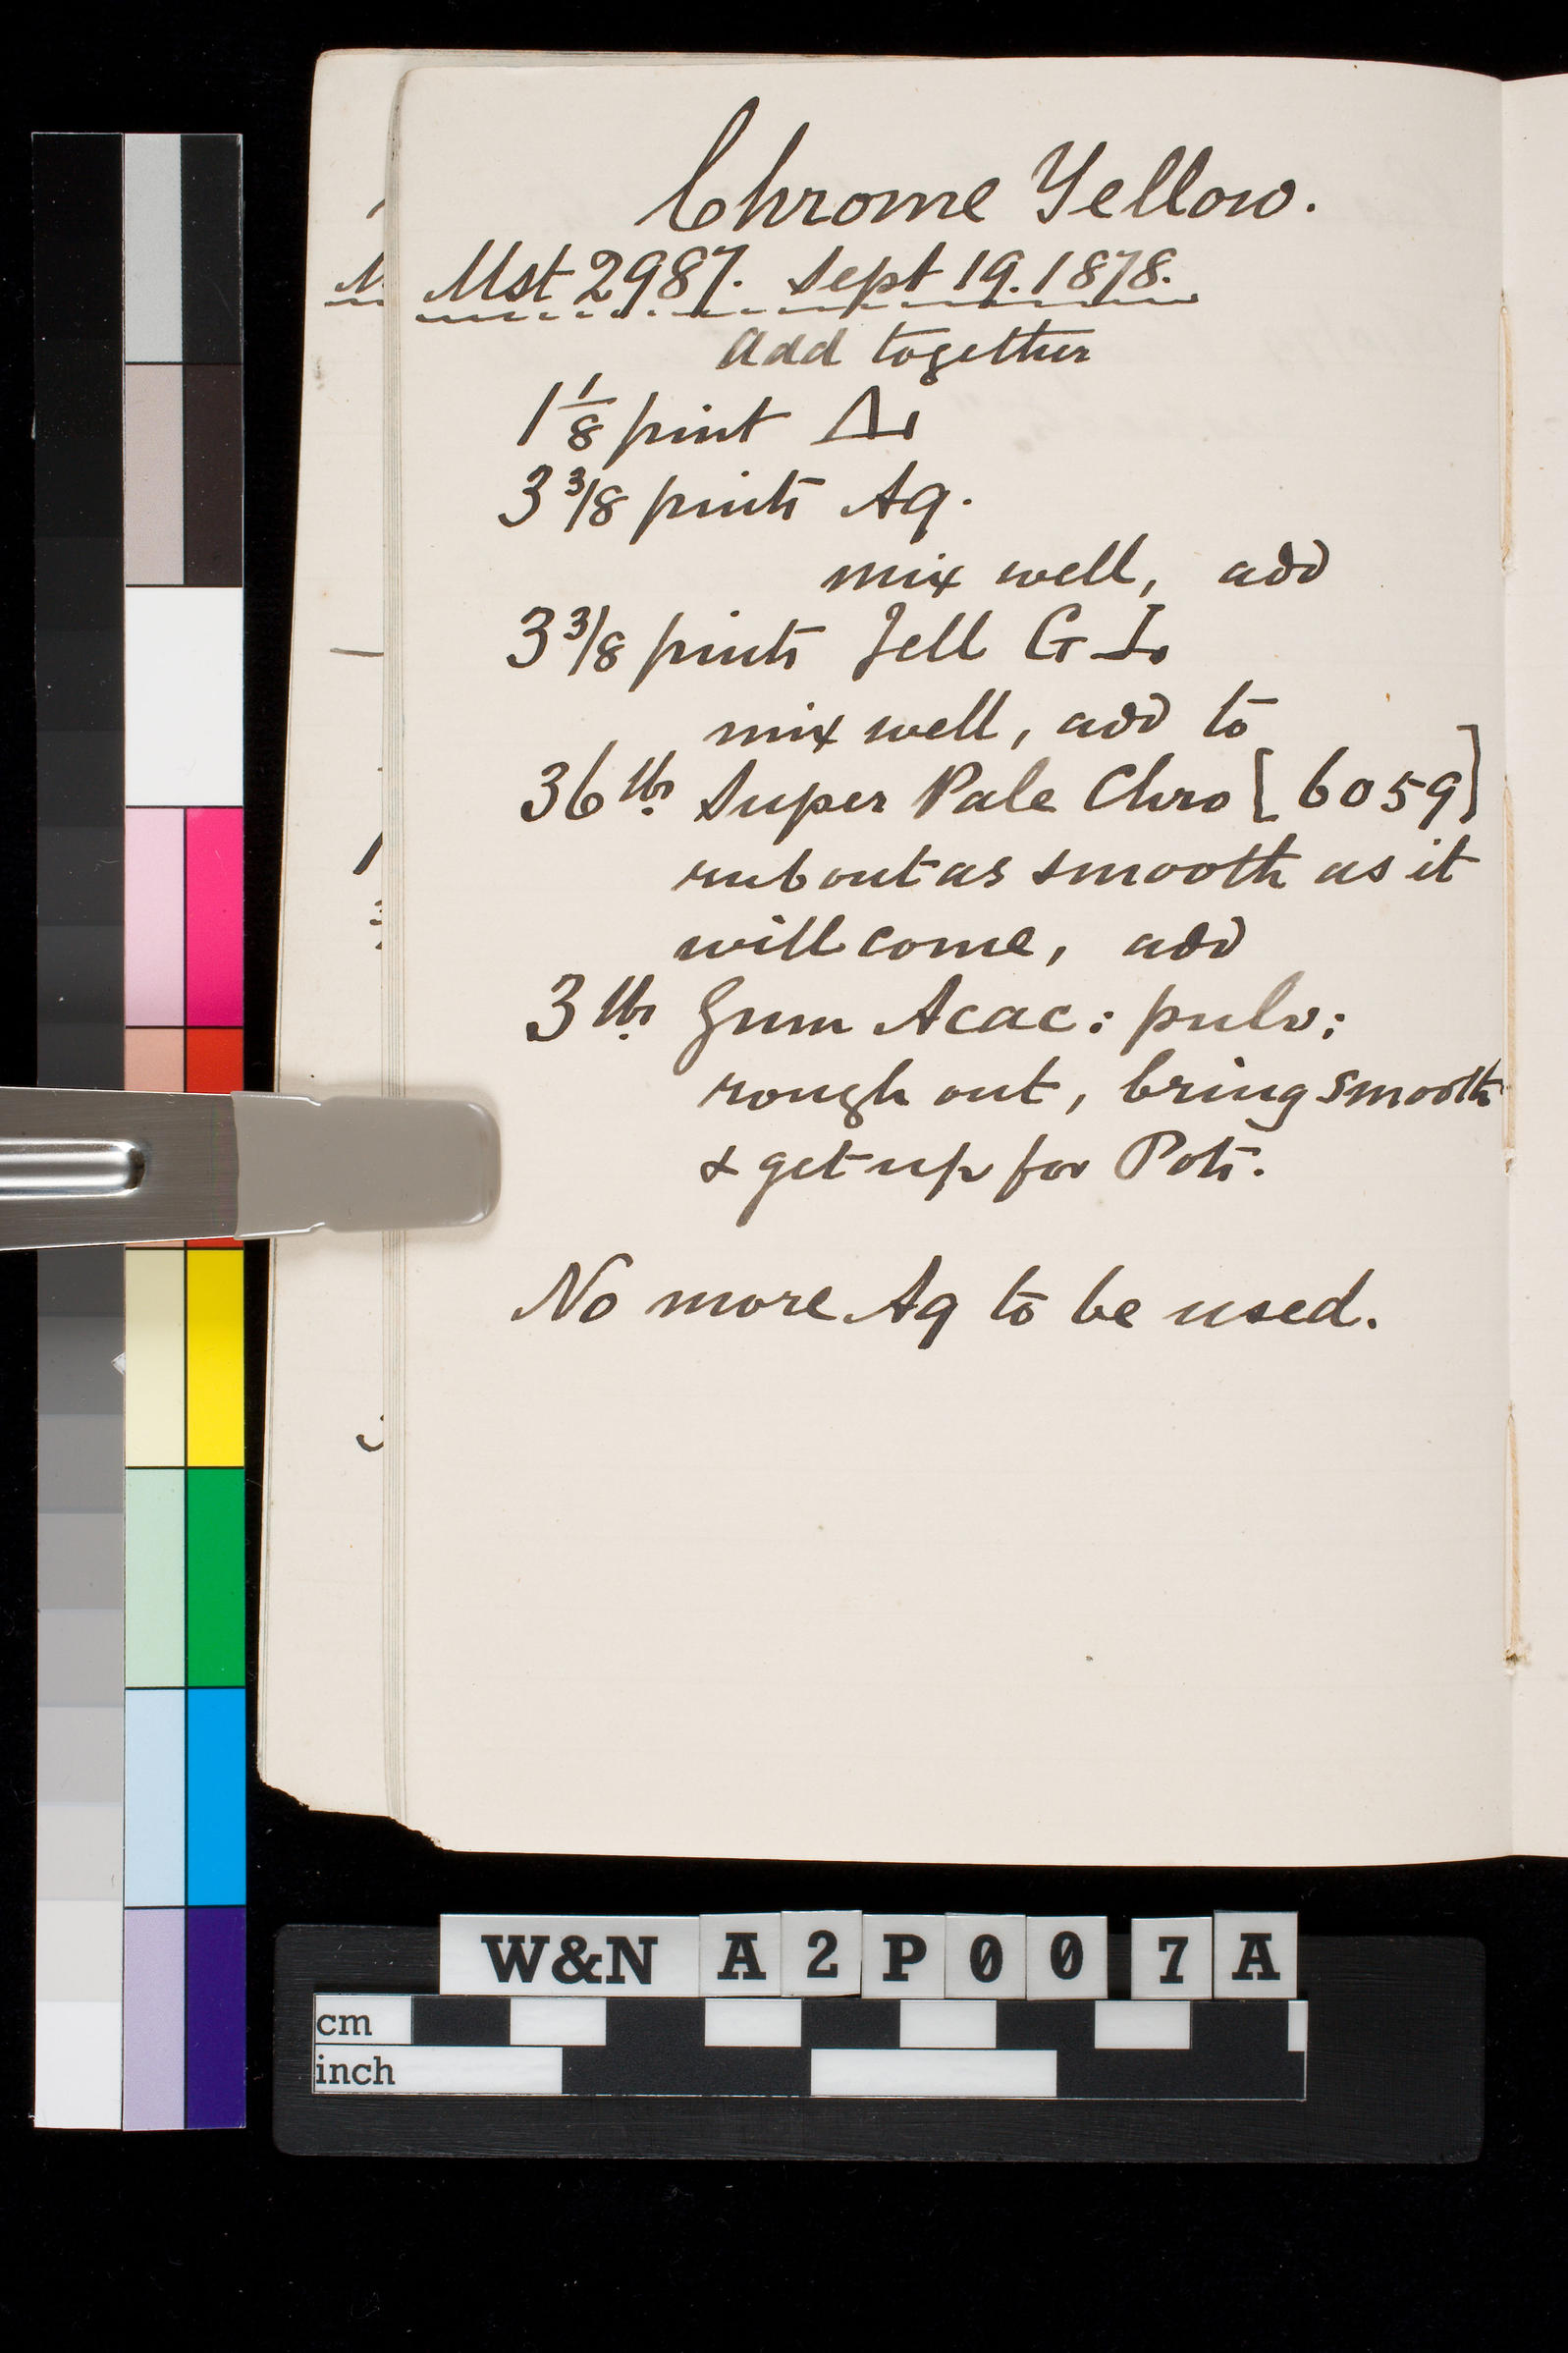 Chrome Yellow.
Mst 2987. Sept 19. 1878.
Add together
1 1/8 pint Δ1
3 3/8 pints Aq.
mix well, add
3 3/8 pints Jell G I.
mix well, add to
36 lbs. Super Pale Chro [6059]
rub out as smooth as it
will come, add
3 lbs. Gum Acac: pulv:
rough out, bring smooth
& get up for Pots.
No more Aq to be used.
W&N A2P007A
cm
inch